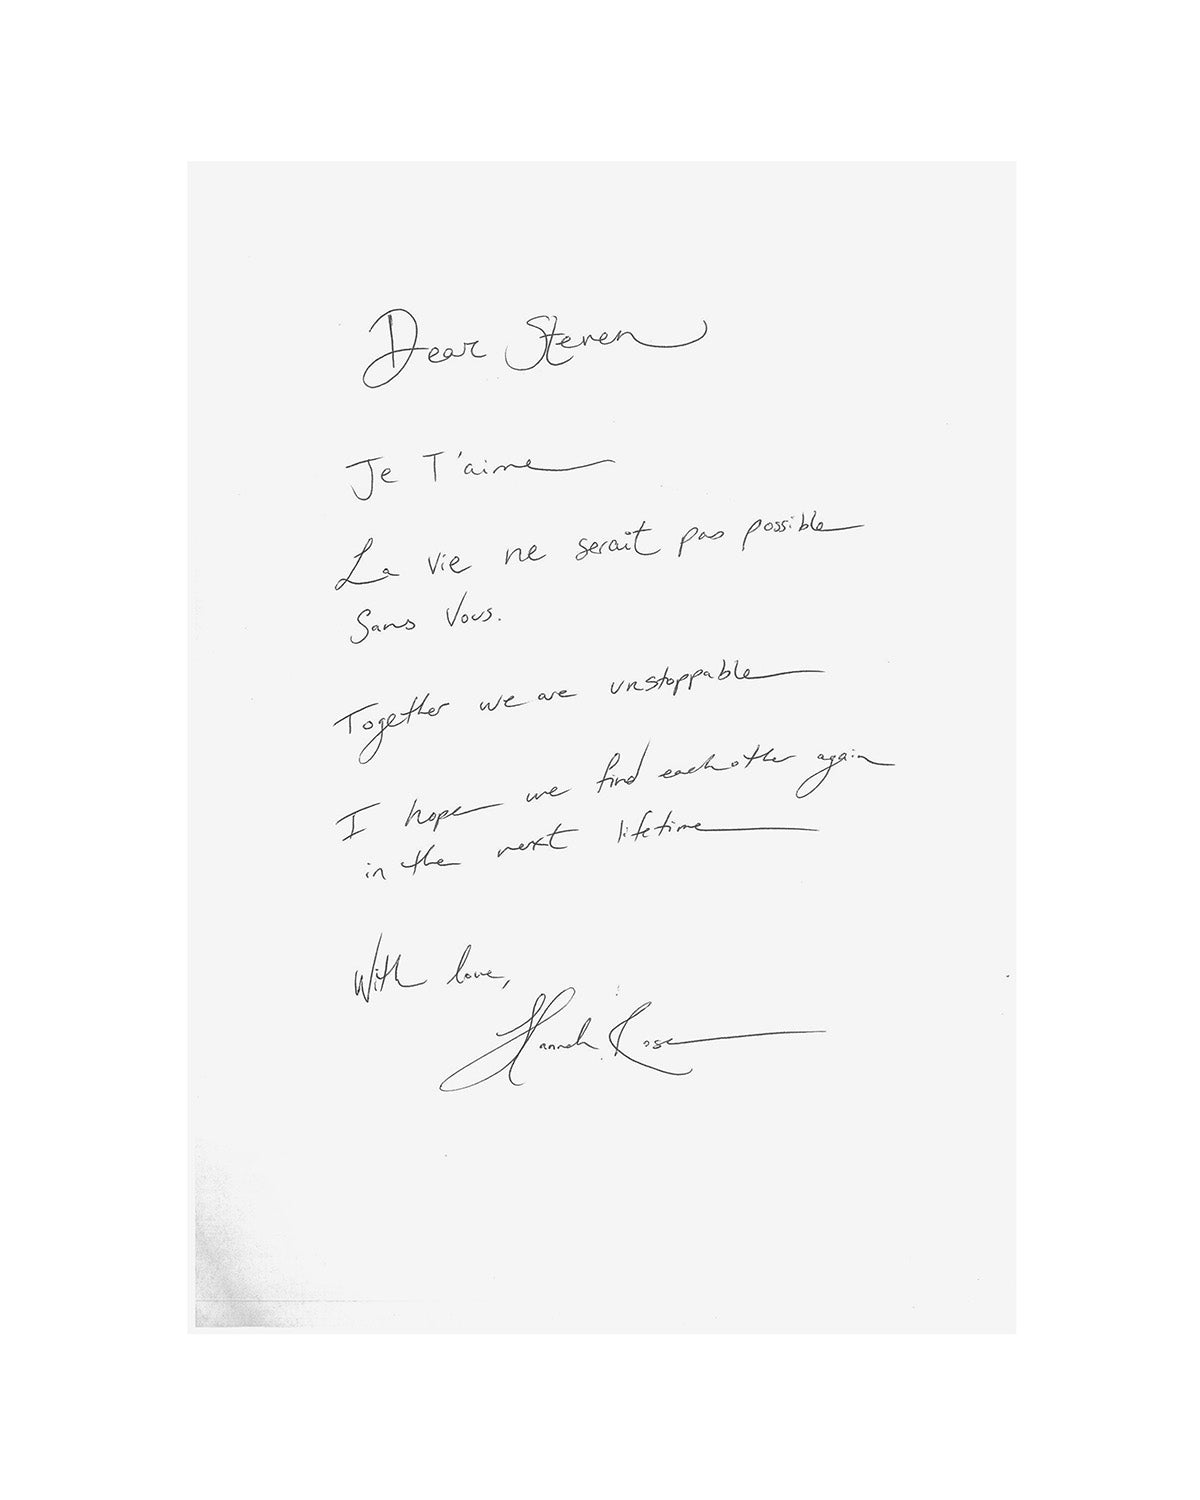 Dear Steven
Je T'aime
La vie ne serait pas possible
Sans Vous.
Together we are unstoppable
I hope we find eachother again
in the next lifetime
With love,
Hannah Rose